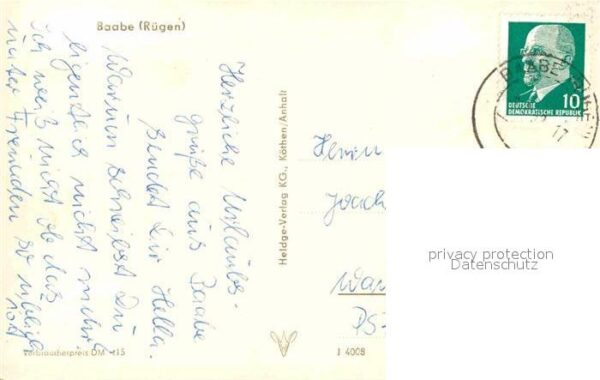 Baabe (Rügen)
Herzliche Urlaubs-
grüße aus Baabe
sendet Dir Hella.
Warum schreibst Du
eigentlich nicht mehr?
Ich weiß nicht ob das
unter Freunden so üblich
ist
Verbraucherpreis DM -,15
Heldge-Verlag KG., Köthen/Anhalt
J 4008
BAABE
17
DEUTSCHE
DEMOKRATISCHE REPUBLIK
10
Herrn
Joach
War
PS-
privacy protection
Datenschutz